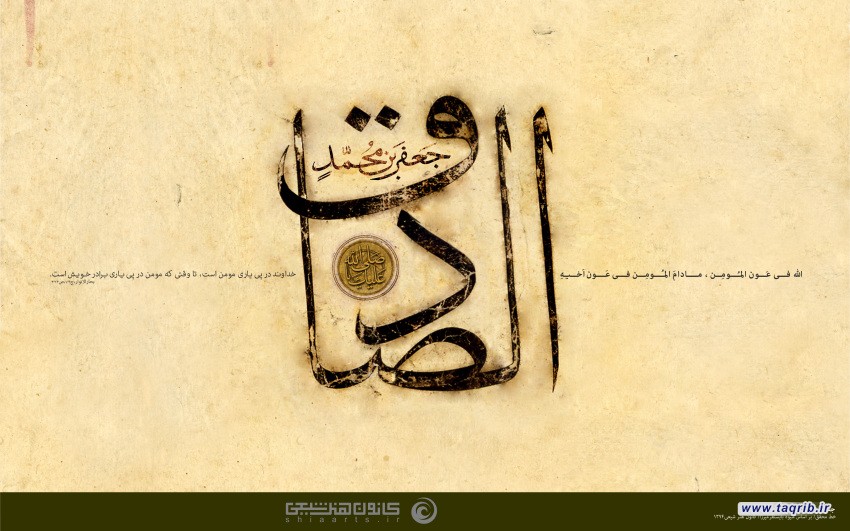 الصادق
جَعفَر بنِ مُحَمَّدٍ
صلی الله علیک یا
الله فـی عَـون المُـؤمِـن ، مـادامَ المُـؤمِـن فـی عَـون أخـیـهِ
خداوند در پی یاری مومن است، تا وقتی که مومن در پی یاری برادر خویش است.
کانون هنر شیعی
shiaarts.ir
www.taqrib.ir